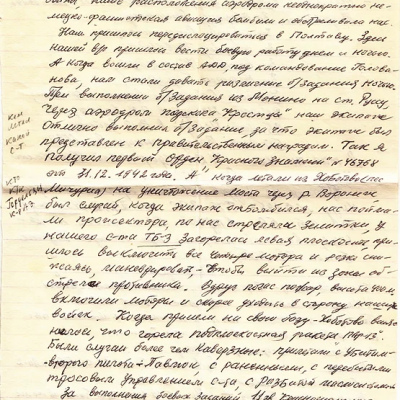 были, наше расположение аэродрома неоднократно не-
мецко-фашистская авиация бомбила и обстреливала нас.
Нам пришлось передислоцироваться в Полтаву. Здесь
нашей в/ч пришлось вести боевую работу днем и ночью.
А когда вошли в состав АДД, под командование Голова-
нова, нам стали давать различные б/задания ночью.
При выполнении б/задания из Монино на ст. Русу
через аэродром подскока "Кростцы" наш экипаж
отлично выполнил б/задание, за что экипаж был
представлен к правительственным наградам. Так я
получил первый орден "Красного Знамени" № 46768
от 31.12.1942 года. А когда летали из Хоботово (ст.
Мичурин) на уничтожение моста через р. Воронеж
был случай, когда экипаж отбомбился, нас пойма-
ли прожектора, по нас стреляли зенитки, у
нашего с-та ТБ-3 загорелась левая плоскость при-
шлось выключить все четыре мотора и резко сни-
жаясь, маневрировать чтобы выйти из зоны об-
стрела противника. Вдруг погас пожар, высота
включили моторы и скорее уходить в сторону наших
войск. Когда пришли на свою базу - Хоботово
что горела подплоскостная ракета
Были случаи более чем каверзные: прилетали с убитым
второго пилота - Павлюк, с ранением, с перебитыми
тросовым управлением с-та, с разбитой
За выполнения боевых заданий
Кем
Какой
С-Т